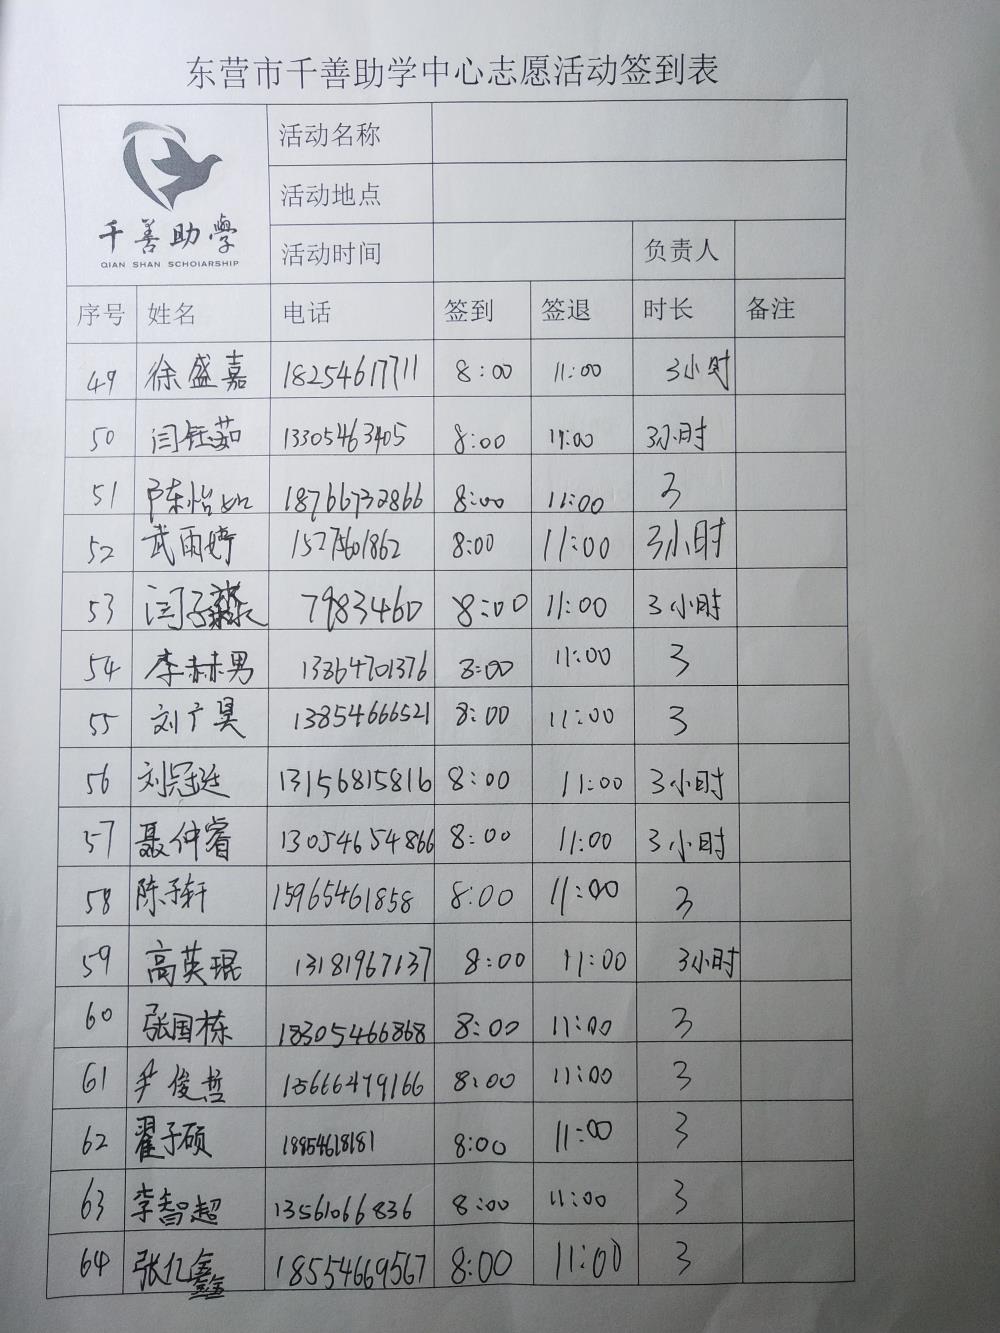 东营市千善助学中心志愿活动签到表
千善助学
QIAN SHAN SCHOIARSHIP
活动名称
活动地点
活动时间 负责人
序号 姓名 电话 签到 签退 时长 备注
49 徐盛嘉 18254617711 8:00 11:00 3小时
50 闫钰茹 13305463405 8:00 11:00 3小时
51 陈怡如 18766732866 8:00 11:00 3
52 武雨婷 15275601862 8:00 11:00 3小时
53 闫子 7983460 8:00 11:00 3小时
54 李赫男 13864701376 8:00 11:00 3
55 刘广昊 13854666521 8:00 11:00 3
56 刘冠廷 13156815816 8:00 11:00 3小时
57 聂仲睿 13054654866 8:00 11:00 3小时
58 陈子轩 15965461858 8:00 11:00 3
59 高英琨 13181967137 8:00 11:00 3小时
60 张国栋 18305466868 8:00 11:00 3
61 尹俊哲 15666479166 8:00 11:00 3
62 翟子硕 18954618181 8:00 11:00 3
63 李智超 13561066836 8:00 11:00 3
64 张亿鑫 18554669567 8:00 11:00 3